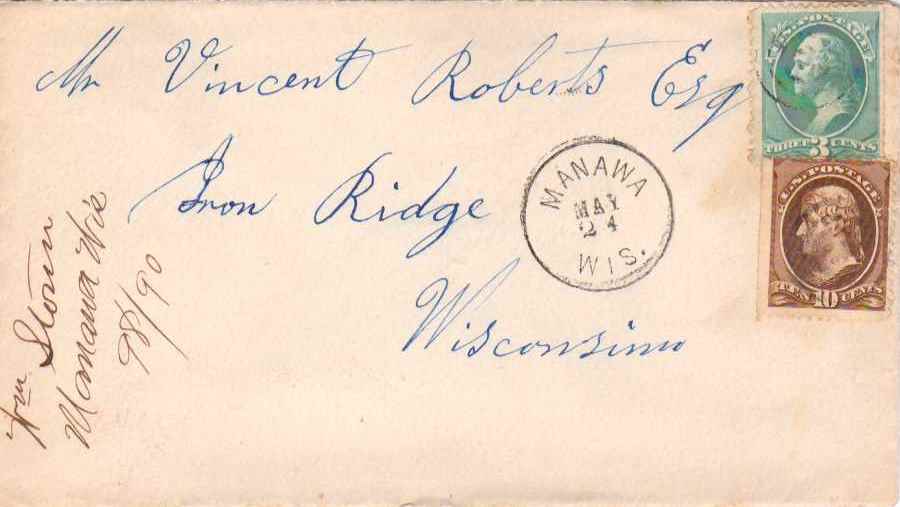 Mr Vincent Roberts Esq
Iron Ridge
Wisconsin
MANAWA
MAY
24
WIS.
U.S. POSTAGE
THREE 3 CENTS
U.S. POSTAGE
TEN 10 CENTS
Wm
Manawa Wis
/90